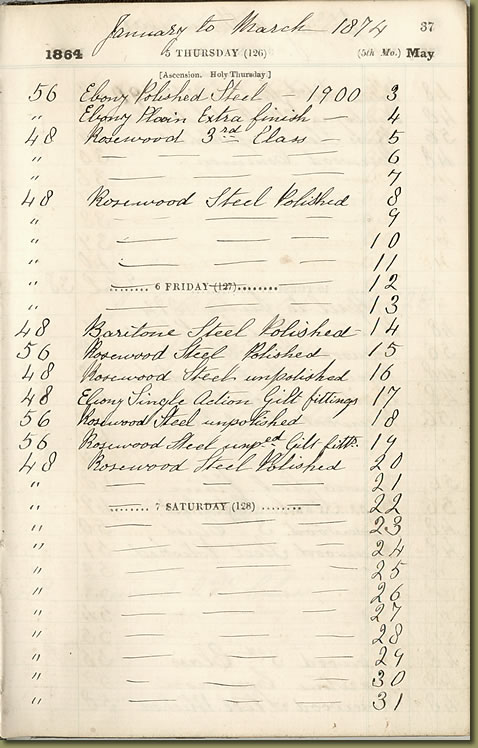 January to March 1874 37
1864 5 THURSDAY (126) (5th Mo.) May
[Ascension. Holy Thursday.]
56 Ebony Polished Steel – 1900 3
" Ebony Plain Extra finish — 4
48 Rosewood 3rd Class — 5
" — — — 6
" — — — 7
48 Rosewood Steel Polished 8
" — — — 9
" — — — 10
" — — — 11
" ........ 6 FRIDAY (127) ........ 12
" — — — 13
48 Baritone Steel Polished 14
56 Rosewood Steel Polished 15
48 Rosewood Steel unpolished 16
48 Ebony Single Action Gilt fittings 17
56 Rosewood Steel unpolished 18
56 Rosewood Steel unped Gilt fitts. 19
48 Rosewood Steel Polished 20
" — — — 21
" ........ 7 SATURDAY (128) ........ 22
" — — — 23
" — — — 24
" — — — 25
" — — — 26
" — — — 27
" — — — 28
" — — — 29
" — — — 30
" — — — 31